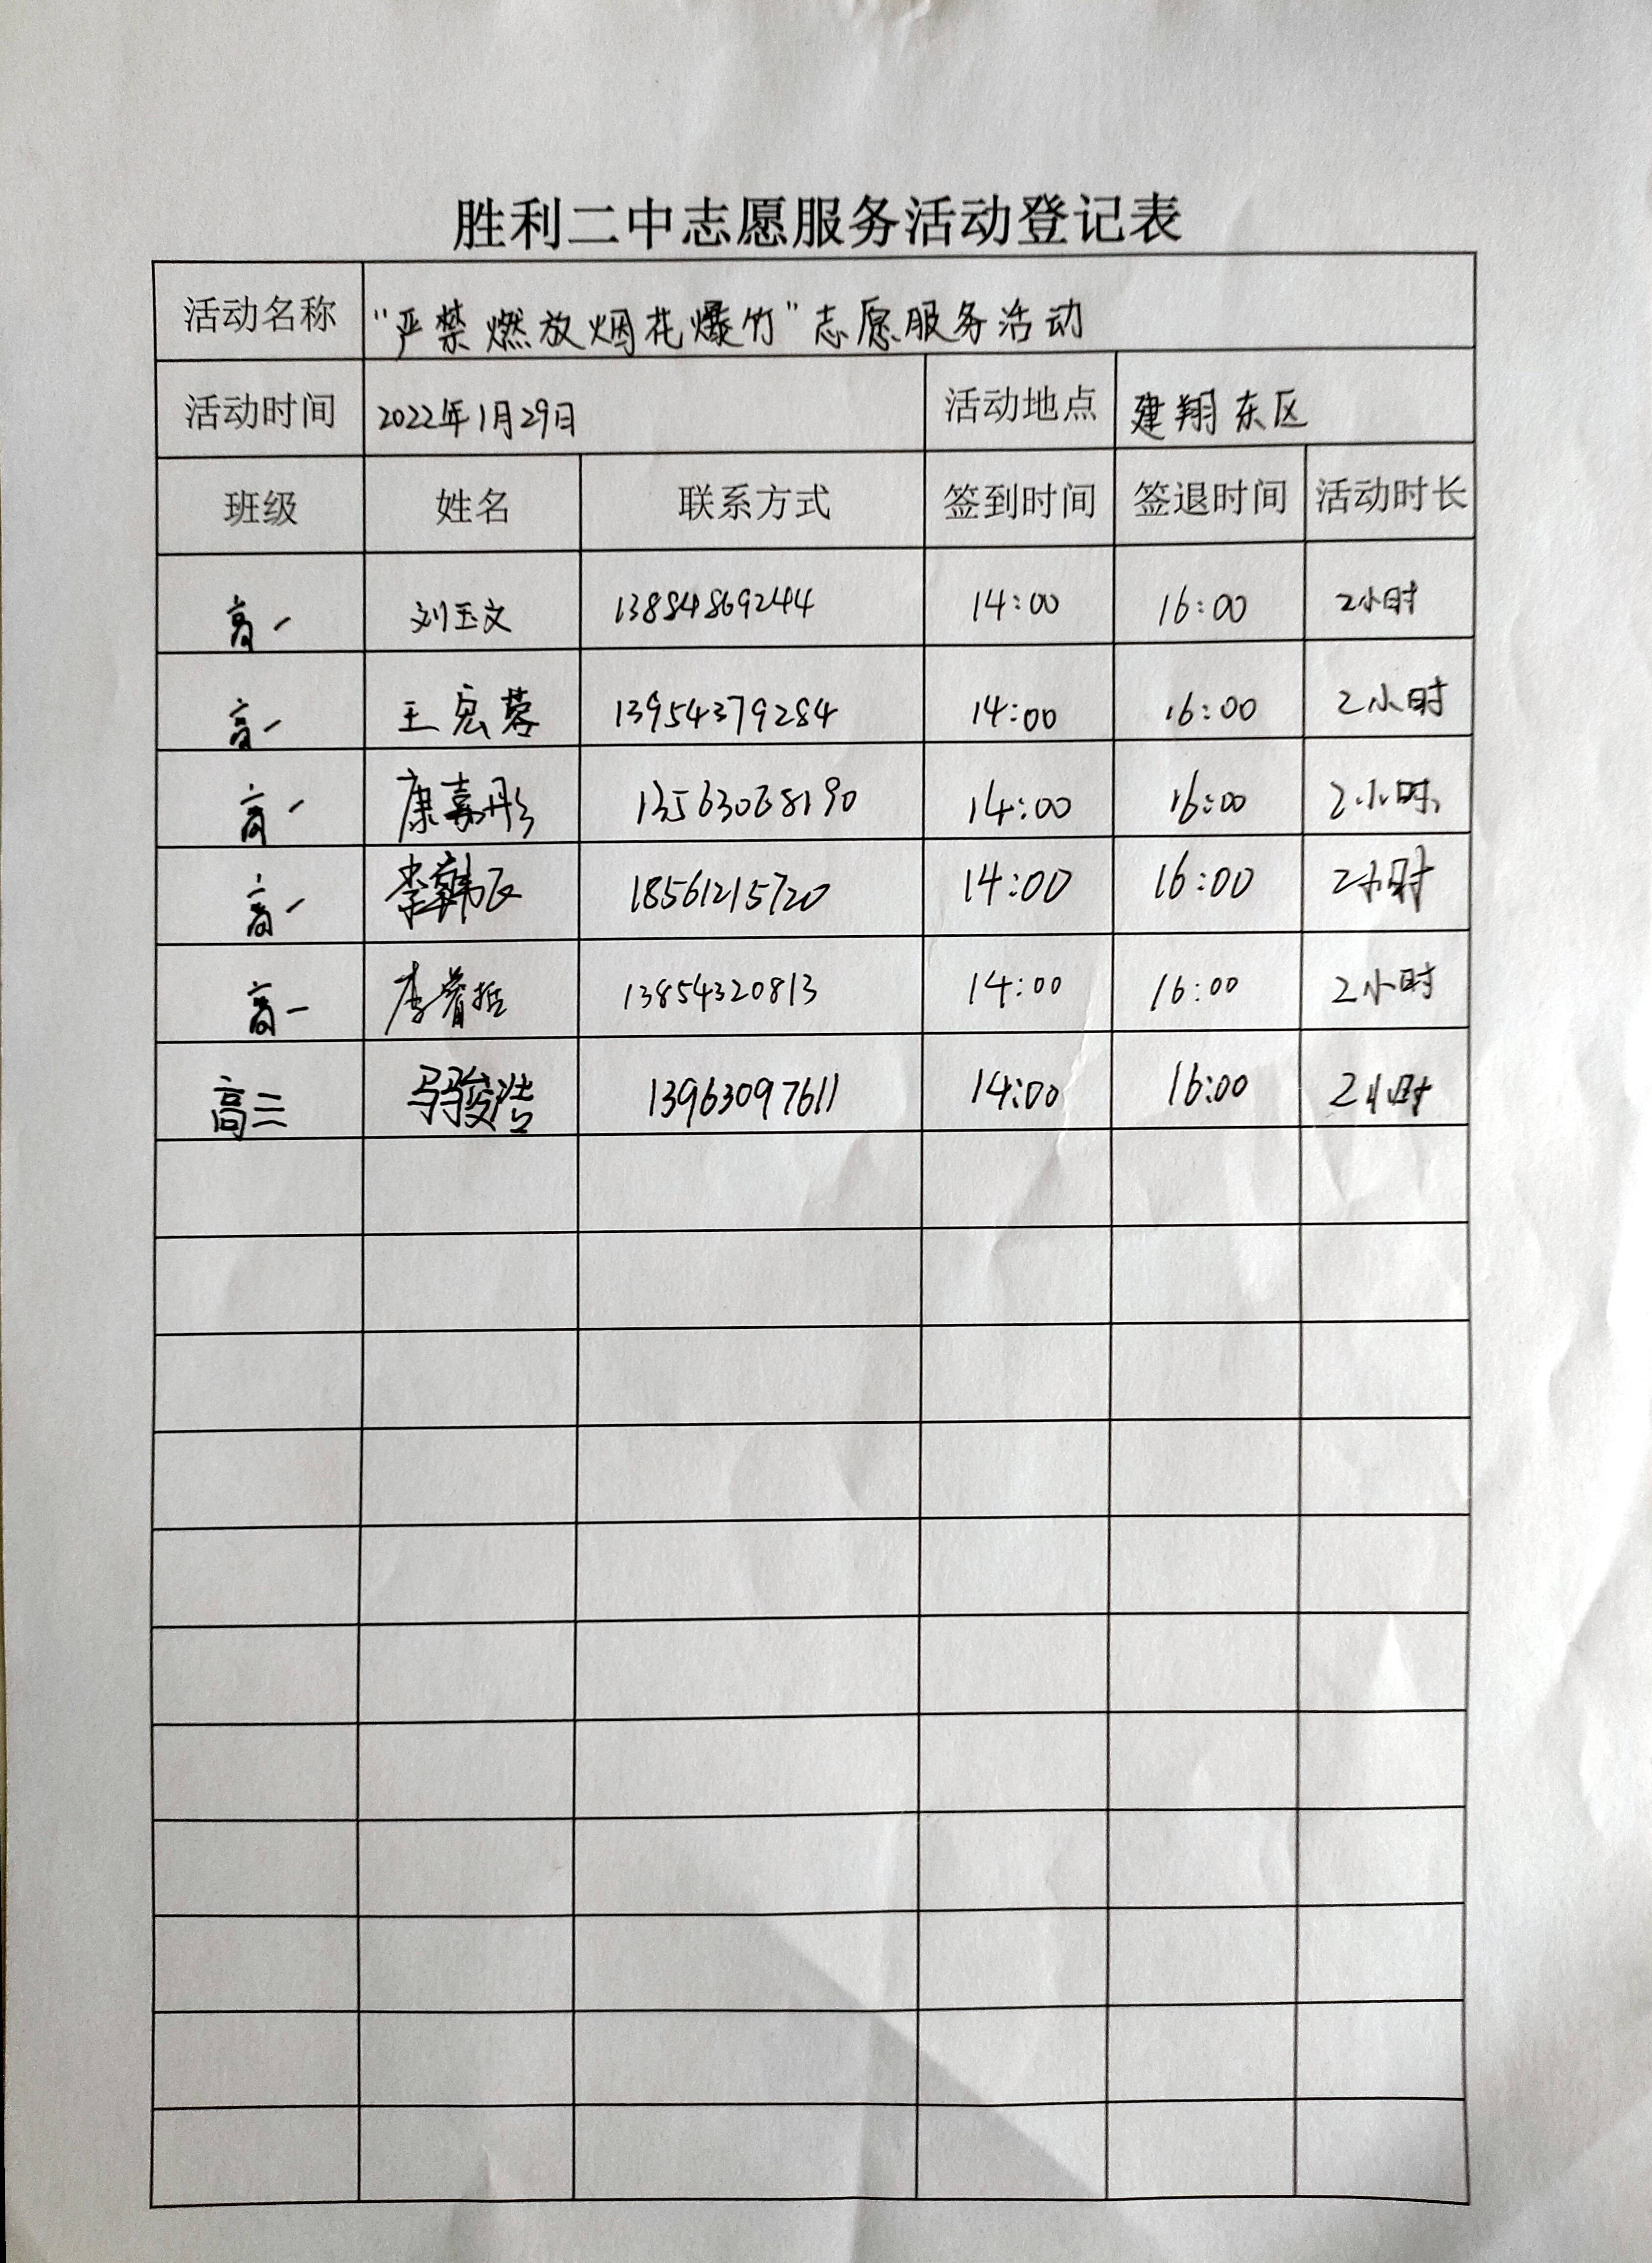 胜利二中志愿服务活动登记表
活动名称 “严禁燃放烟花爆竹”志愿服务活动
活动时间 2022年1月29日 活动地点 建翔东区
班级 姓名 联系方式 签到时间 签退时间 活动时长
高一 刘玉文 13884869244 14:00 16:00 2小时
高一 王宏蓉 13954379284 14:00 16:00 2小时
高一 康嘉彤 13563068190 14:00 16:00 2小时
高一 李韩辰 18561215720 14:00 16:00 2小时
高一 李 13854320813 14:00 16:00 2小时
高三 马骏浩 13963097611 14:00 16:00 2小时